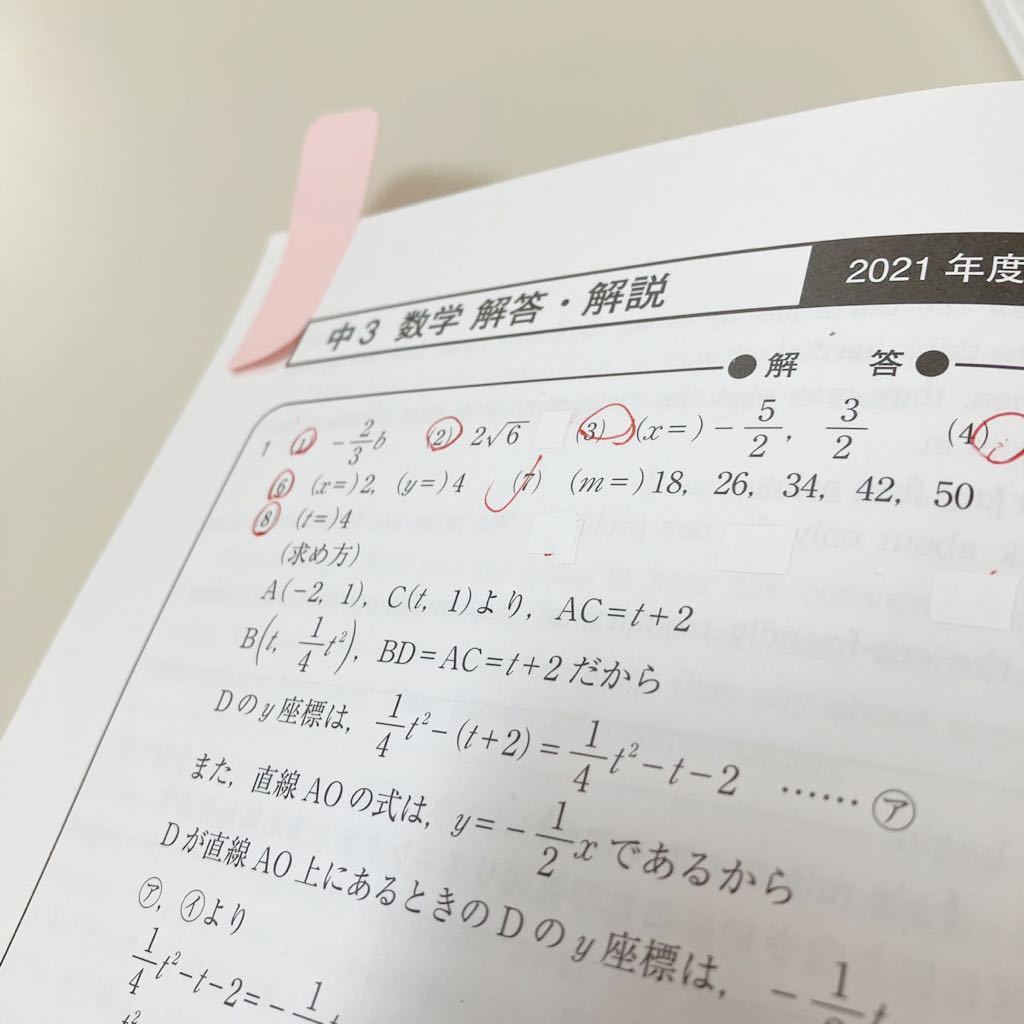 中3 数学 解答・解説
2021 年度
●解 答●
1 (1) -2/3 b (2) 2√6 (3) (x=) -5/2, 3/2 (4)
(6) (x=)2, (y=)4 (7) (m=)18, 26, 34, 42, 50
(8) (t=)4
(求め方)
A(-2, 1), C(t, 1)より, AC=t+2
B(t, 1/4 t²), BD=AC=t+2だから
Dのy座標は, 1/4 t²-(t+2)=1/4 t²-t-2 ……㋐
また, 直線AOの式は, y=-1/2 xであるから
Dが直線AO上にあるときのDのy座標は, -1/2 t
㋐, ㋑より
1/4 t²-t-2=-1/
t²